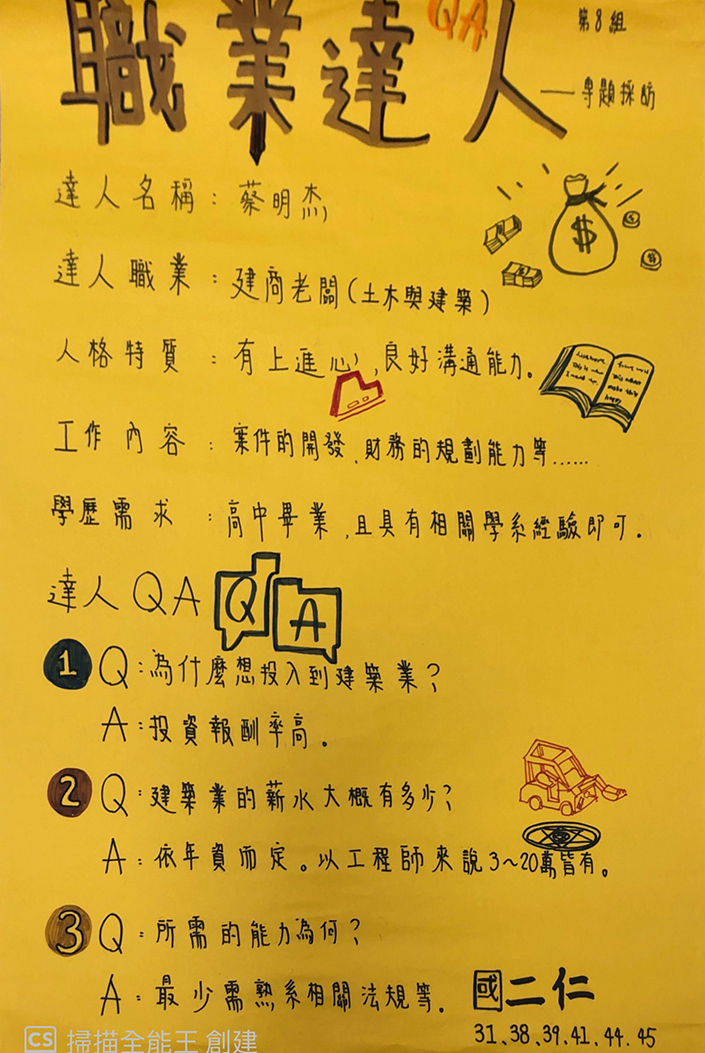 職業達人
QA
第8組
——專題採訪
達人名稱：蔡明杰
達人職業：建商老闆(土木與建築)
人格特質：有上進心,良好溝通能力。
工作內容：案件的開發、財務的規劃能力等......
學歷需求：高中畢業,且具有相關學系經驗即可。
達人QA
Q A
1 Q：為什麼想投入到建築業？
A：投資報酬率高。
2 Q：建築業的薪水大概有多少？
A：依年資而定。以工程師來說3~20萬皆有。
3 Q：所需的能力為何？
A：最少需熟系相關法規等。
國二仁
31、38、39、41、44、45
CS 掃描全能王 創建